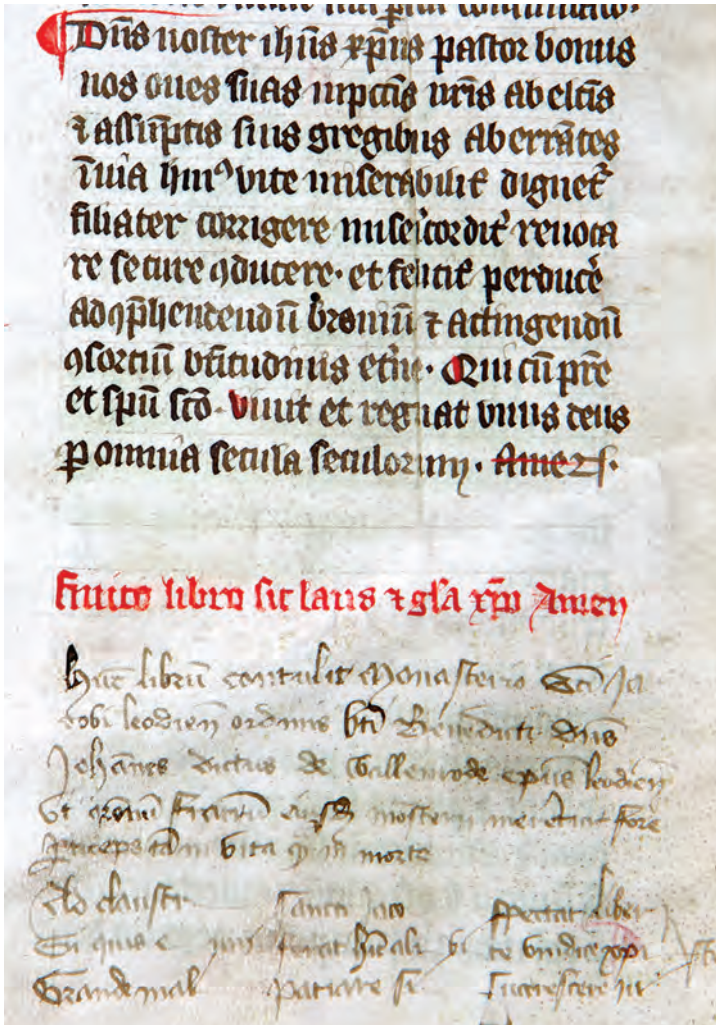 Dn̄s noster ihūs xp̄us pastor bonus
nos oues suas ab
⁊ assūptis suis gregibus aberrātes
ī uia huiꝰ vite miserabilit̉ dignet̉
filiater corrigere miseicordit̉ reuoca
re secure ꝯducere · et felicit̉ perducē
ad ꝯp̄hendendū brauiū ⁊ attingendū
ꝯsortiū btitudinis et̄ne · Qui cū pr̄e
et spū scō · viuit et regnat vnus deus
ꝑ omnia secula seculorum · Amen ·
finito libro sit laus ⁊ gl̄a xp̄o Amen
Hūc librū contulit Monasteio Scī Ja
cobi leodieñ ordinis btī Benedicti dn̄s
Johānes dictus de Wallenrode ep̄us leodieñ
Vt or̄onū fratrū eiusd̄ mōsterii meret̉ fore
ꝑticeps tā in vita qͣ in morte
claustr sancti Jaco spectat liber
quis te vindice xp̄i
Grande mal patiare si succrescere